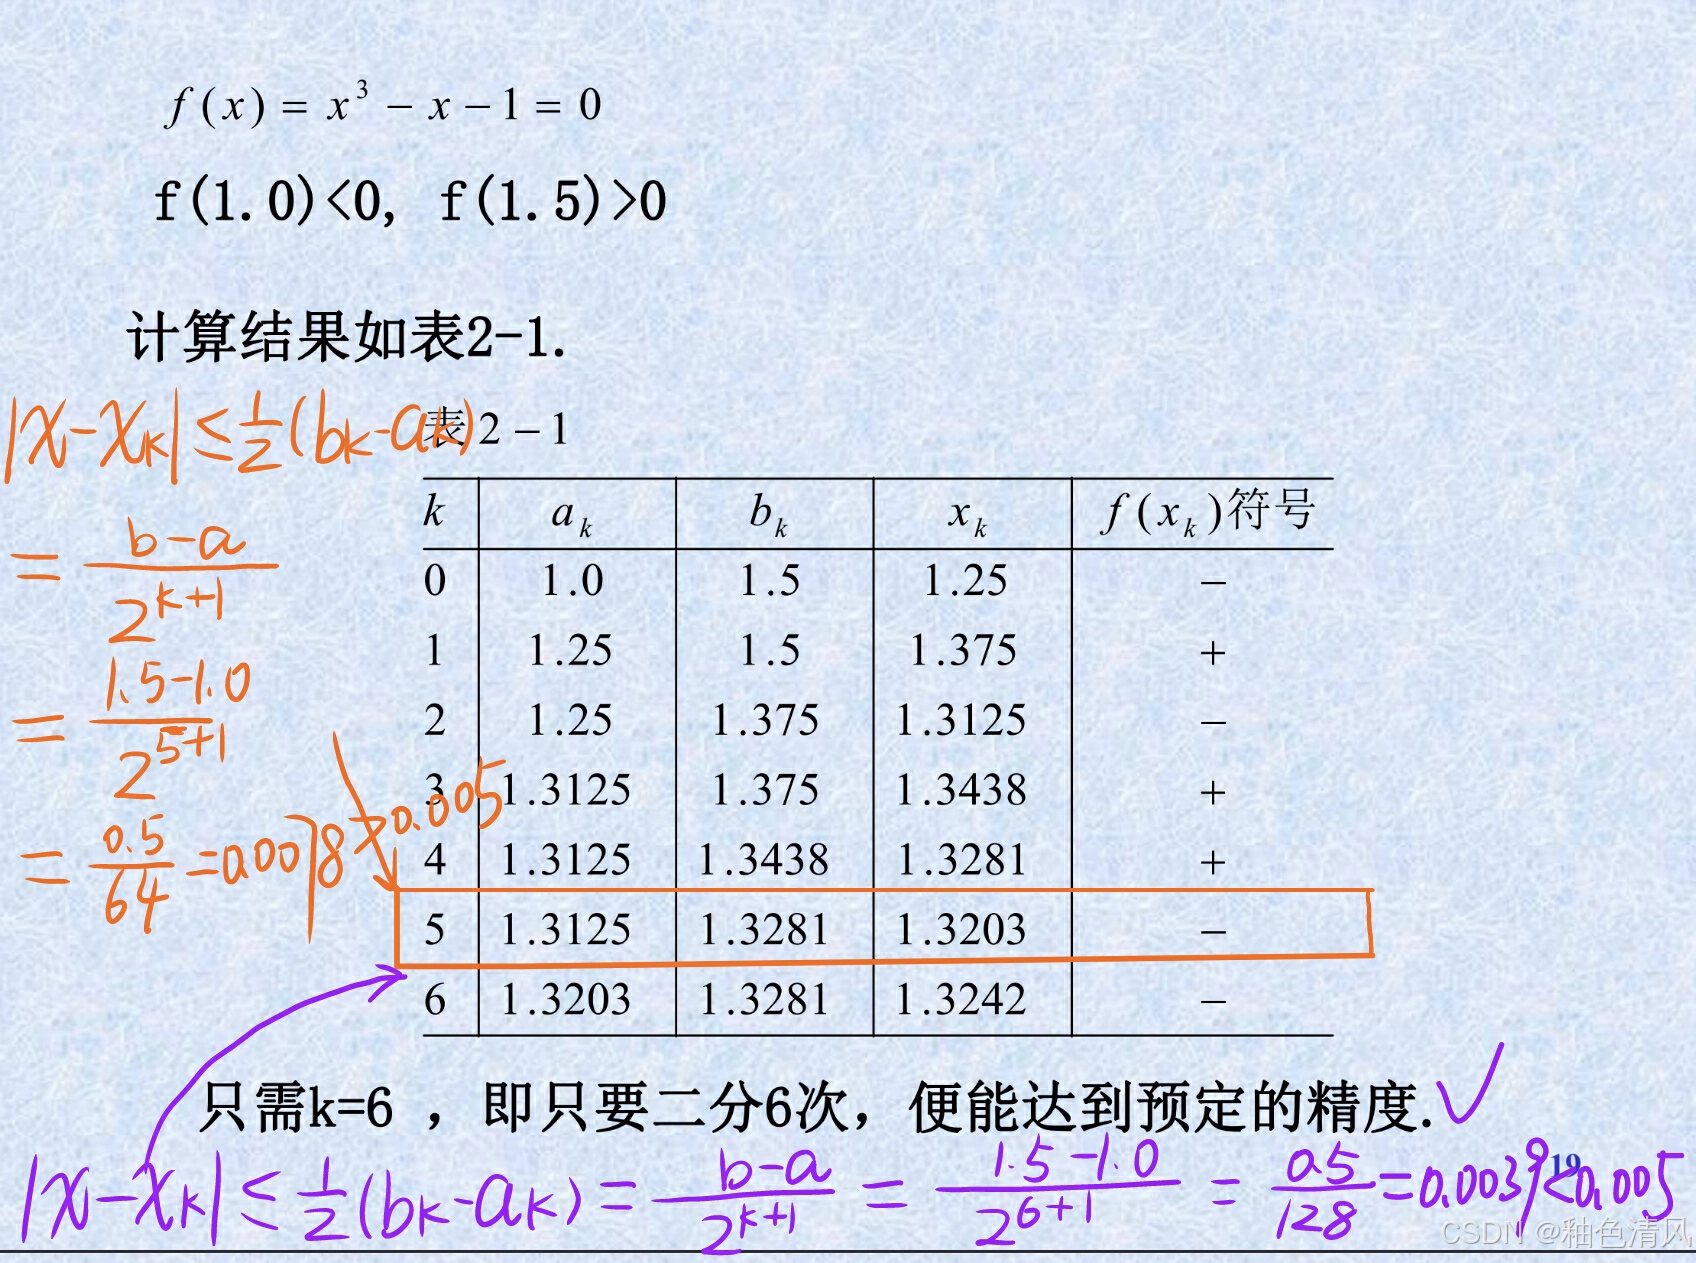 f(x) = x³ − x − 1 = 0
f(1.0)<0, f(1.5)>0
计算结果如表2-1.
|x-xk|≤1/2(bk-ak)
表2−1
= b-a / 2^(k+1)
= 1.5-1.0 / 2^(5+1)
= 0.5/64 = 0.0078 > 0.005
k a_k b_k x_k f(x_k)符号
0 1.0 1.5 1.25 −
1 1.25 1.5 1.375 +
2 1.25 1.375 1.3125 −
3 1.3125 1.375 1.3438 +
4 1.3125 1.3438 1.3281 +
5 1.3125 1.3281 1.3203 −
6 1.3203 1.3281 1.3242 −
只需k=6 ，即只要二分6次，便能达到预定的精度.
|x-xk|≤1/2(bk-ak) = b-a / 2^(k+1) = 1.5-1.0 / 2^(6+1) = 0.5/128 = 0.0039<0.005
19
CSDN @釉色清风